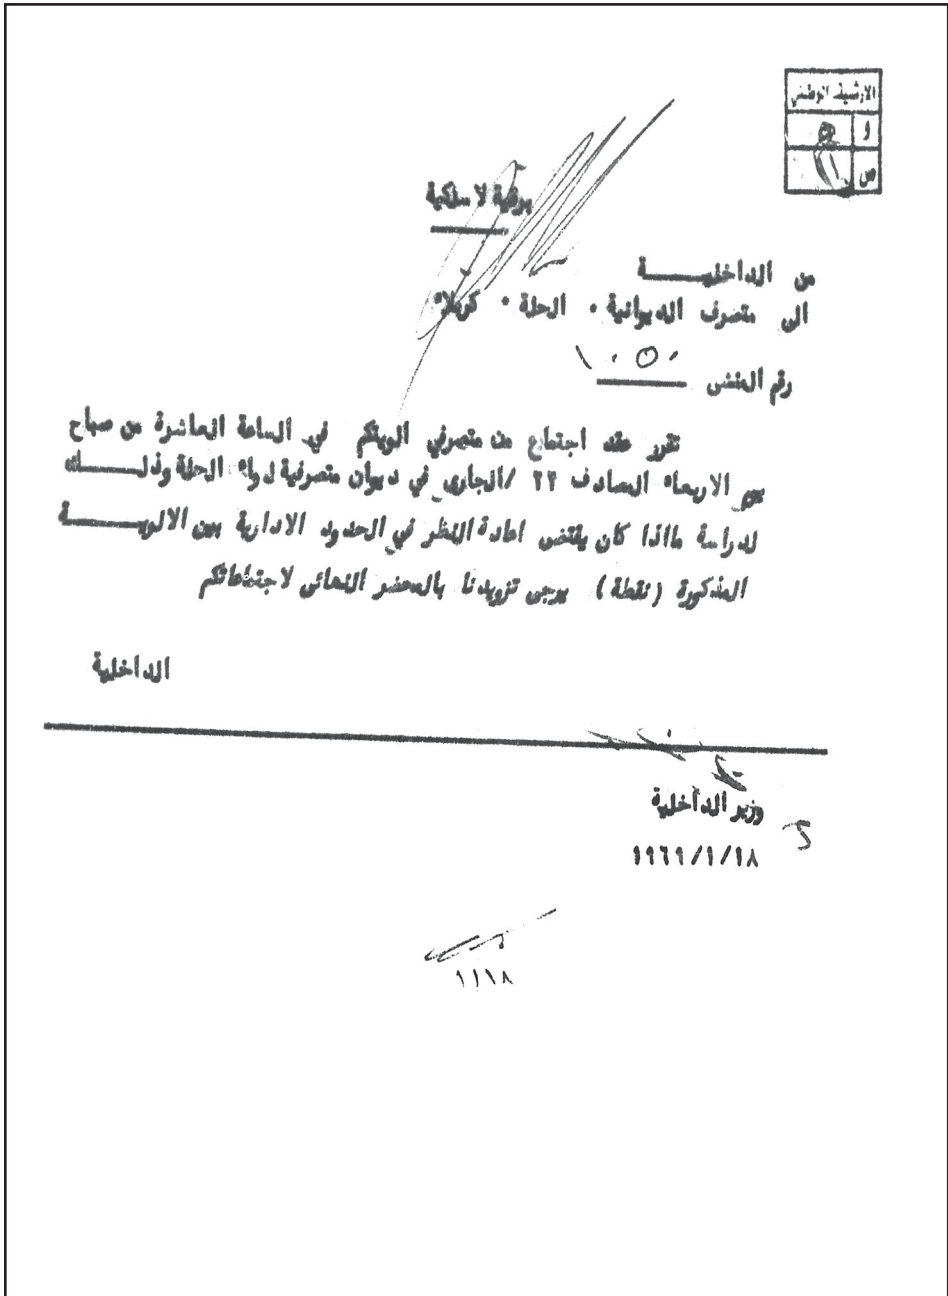 الارشيف الوطني
و
ص
برقية لاسلكية
من الداخليـــــة
الى متصرف الديوانية . الحلة . كربلاء
رقم المنشئ ١٠٥٠
تقرر عقد اجتماع من متصرفي الويتكم في الساعة العاشرة من صباح
يوم الاربعاء المصادف ٢٢ /الجاري في ديوان متصرفية لواء الحلة وذلـــــك
لدراسة مااذا كان يقتضى اعادة النظر في الحدود الادارية بين الالويـــــة
المذكورة (نقطة) يرجى تزويدنا بالمحضر النهائى لاجتماعاتكم
الداخلية
وزير الداخلية
١٩٦٩/١/١٨
١/١٨